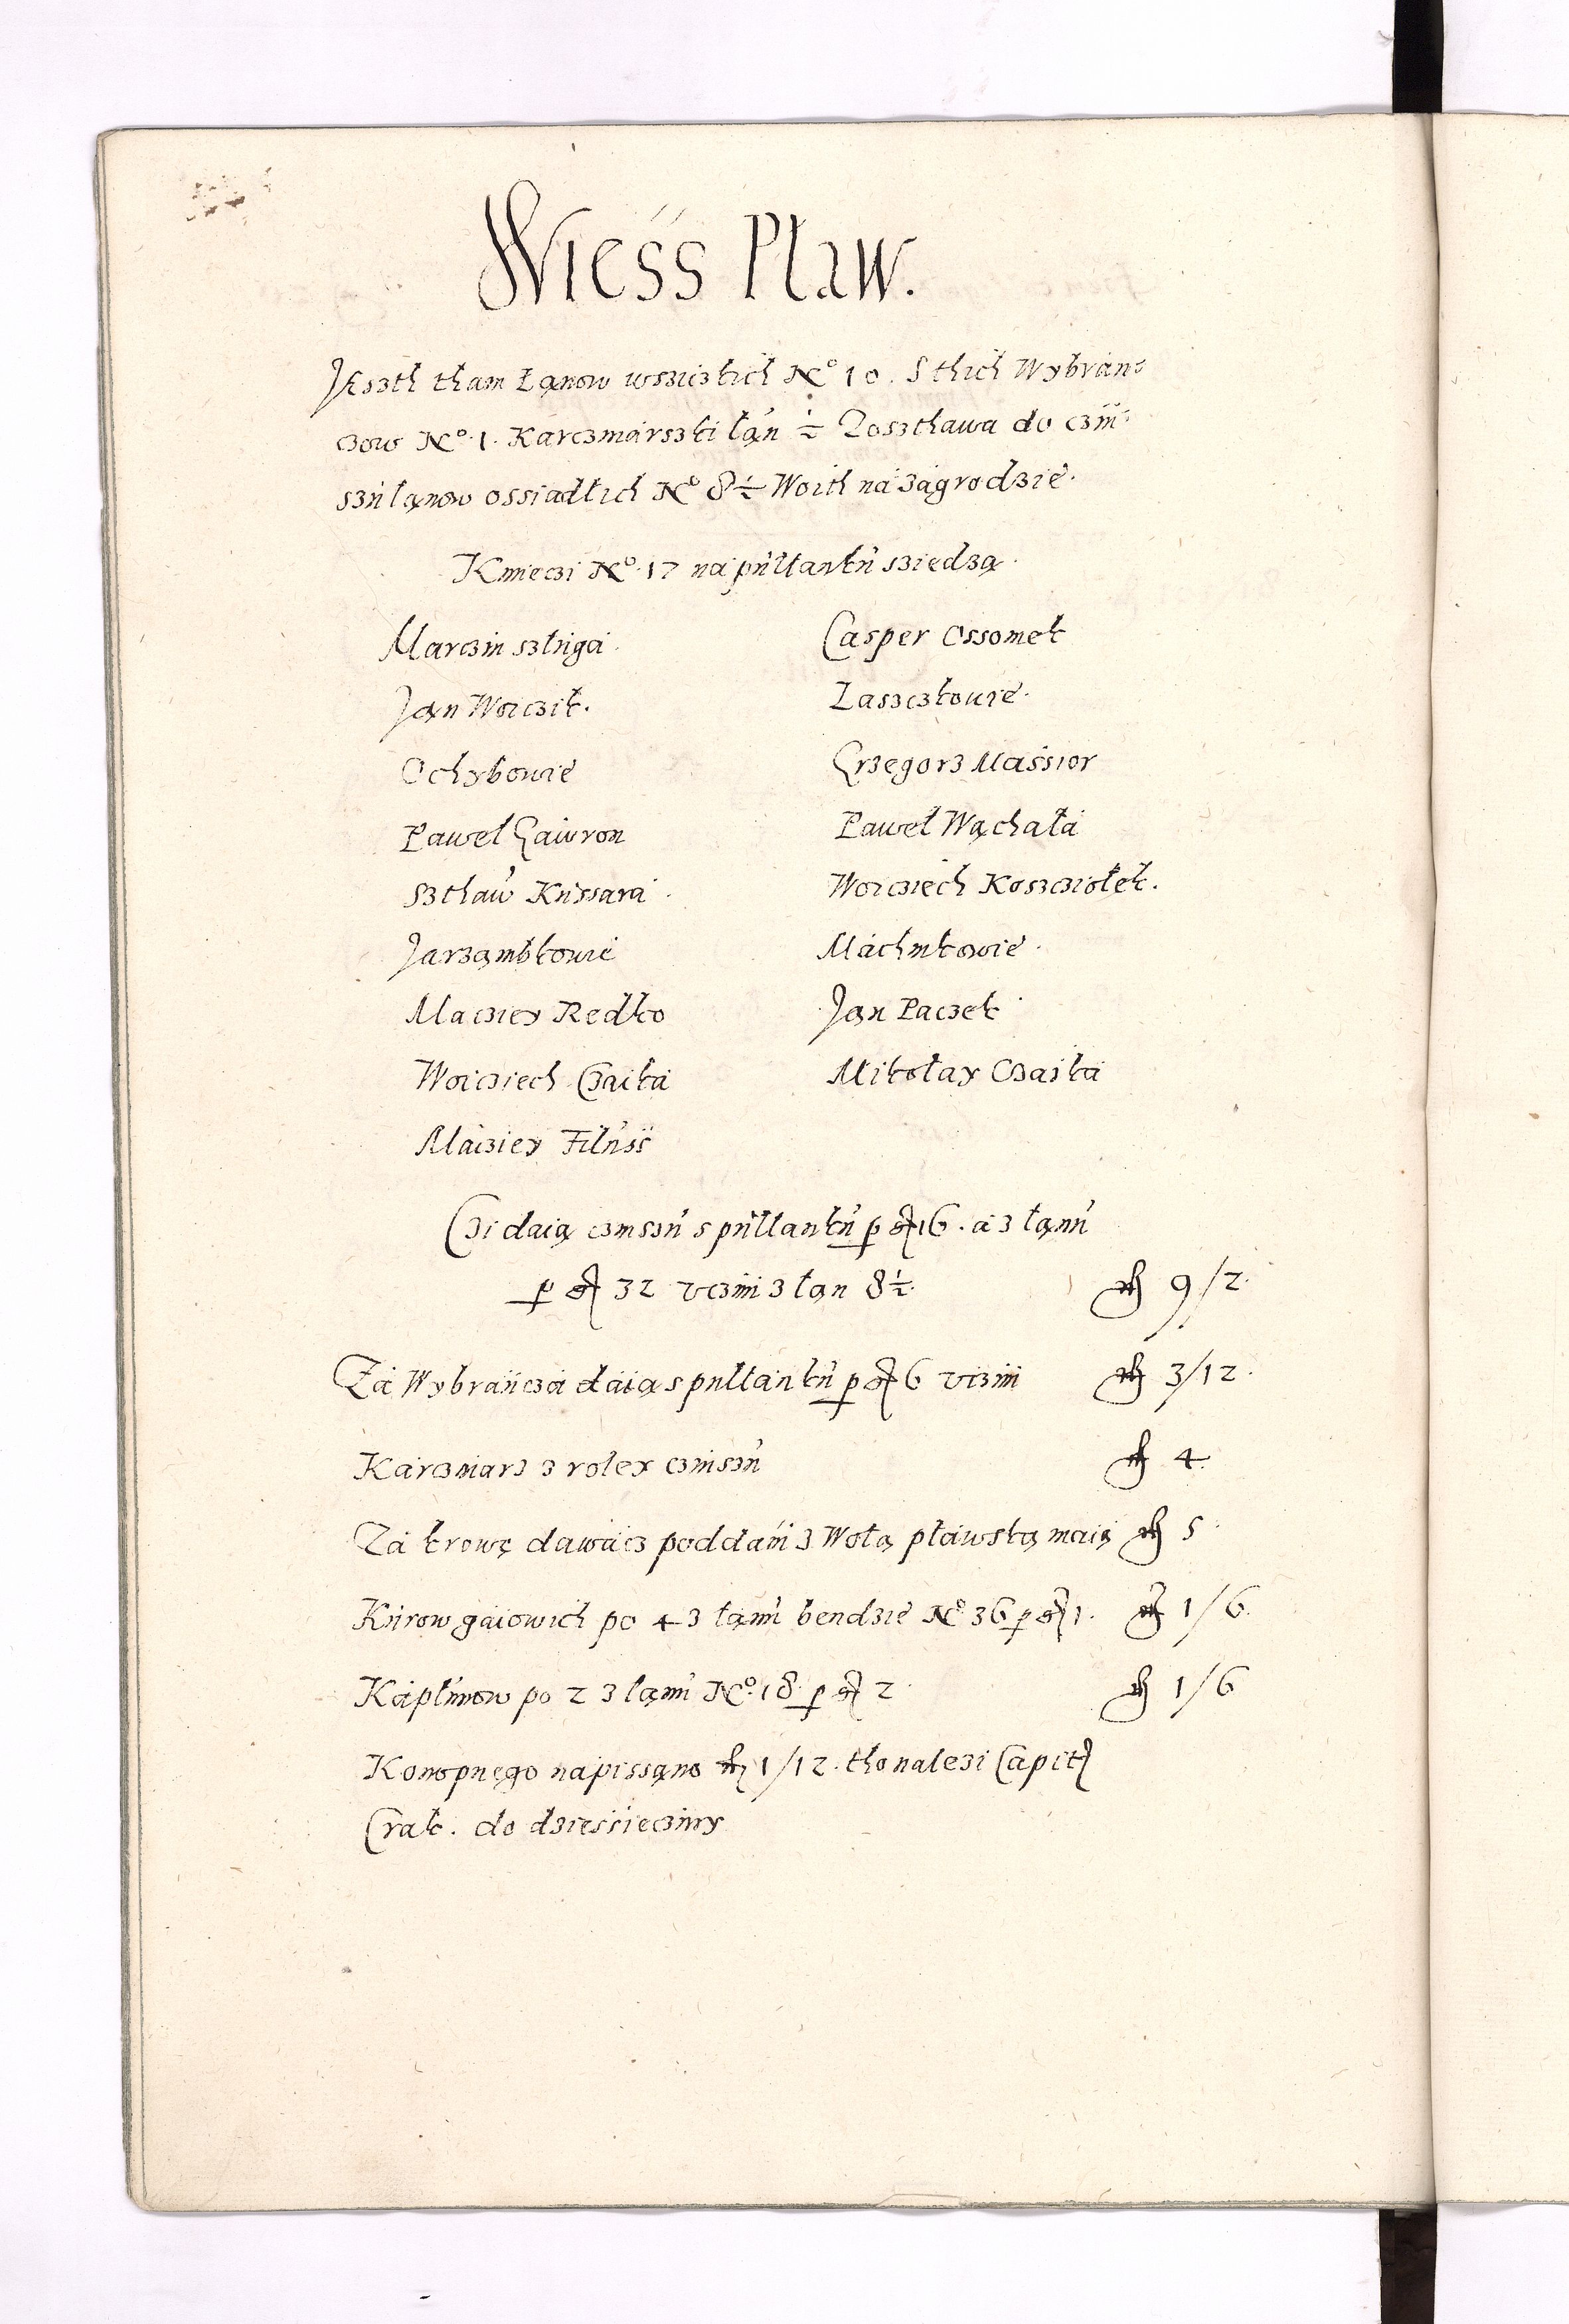 Wieśś Pław.
Jeszth tham Łąnow wsziczkich No 10. S thich Wybran=
czow No 1. Karczmarszki łąn ½ Zoszthawa do czin=
szu łąnow ossiadłich No 8½ Woith na zagrodzie.
Kmieczi No 17 na pułłanku sziedzą.
Marczin szługa.
Jan Woiczik.
Ochybowie
Paweł Gawron
Szthaw Kussara
Jarząmbkowie
Macziey Redko
Woicziech Czaika
Macziey Filuss
Casper Ossomek
Laszczkowie.
Grzegorz Massior
Paweł Wąchała
Woicziech Koszciołek.
Machnikowie.
Jan Paczek
Mikołay Czaika
Czi daią czinszu s pułłanku p gr 16. a z łąnu
p gr 32 vczini z łan 8½. fl 9/2.
Za Wybrańcza daią s pułłanku p gr 6 vczini fl 3/12.
Karczmarz z roley czinszu fl 4
Za krowę dawacz poddani z Wolą pławską maią fl 5.
Kurow gaiowich po 4 z łąnu bendzie No 36 p gr 1. fl 1/6.
Kapłunow po 2 z łąnu No 18. p gr 2. fl 1/6
Konopnego napissąno fl 1/12. tho nalezi Capit
Crak. do dziessięcziny